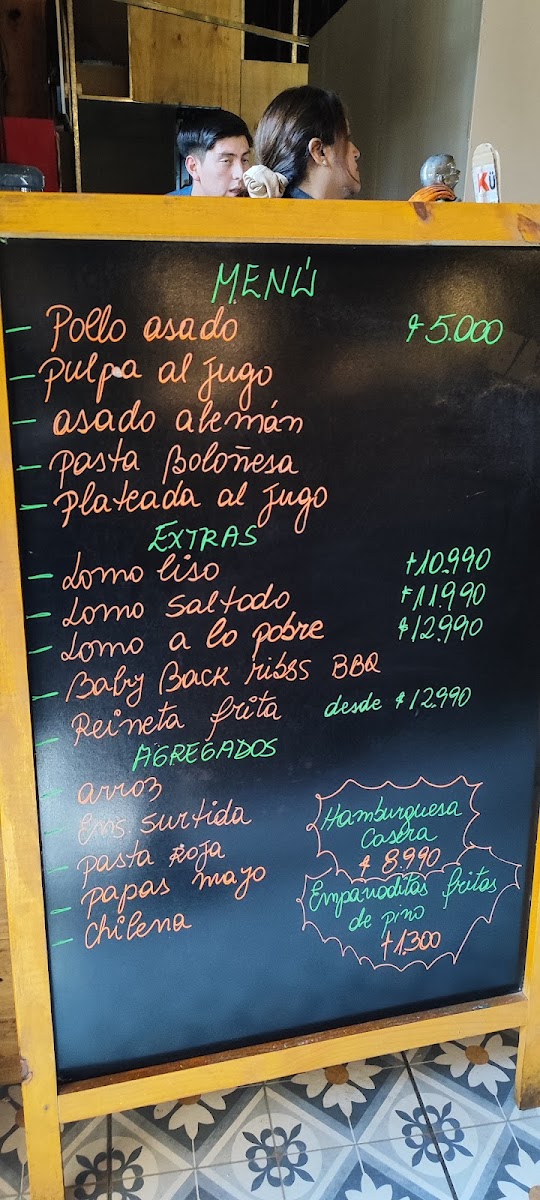 KÜ
MENÚ
- Pollo asado $5.000
- pulpa al jugo
- asado alemán
- pasta Boloñesa
- plateada al jugo
EXTRAS
- Lomo liso $10.990
- Lomo saltado $11.990
- Lomo a lo pobre $12.990
- Baby Back ribss BBQ
- Reineta frita desde $12.990
AGREGADOS
- arroz
- Ens surtida
- pasta Roja
- papas mayo
- chilena
Hamburguesa
Casera
$8.990
Empanaditas fritas
de pino
$1.300